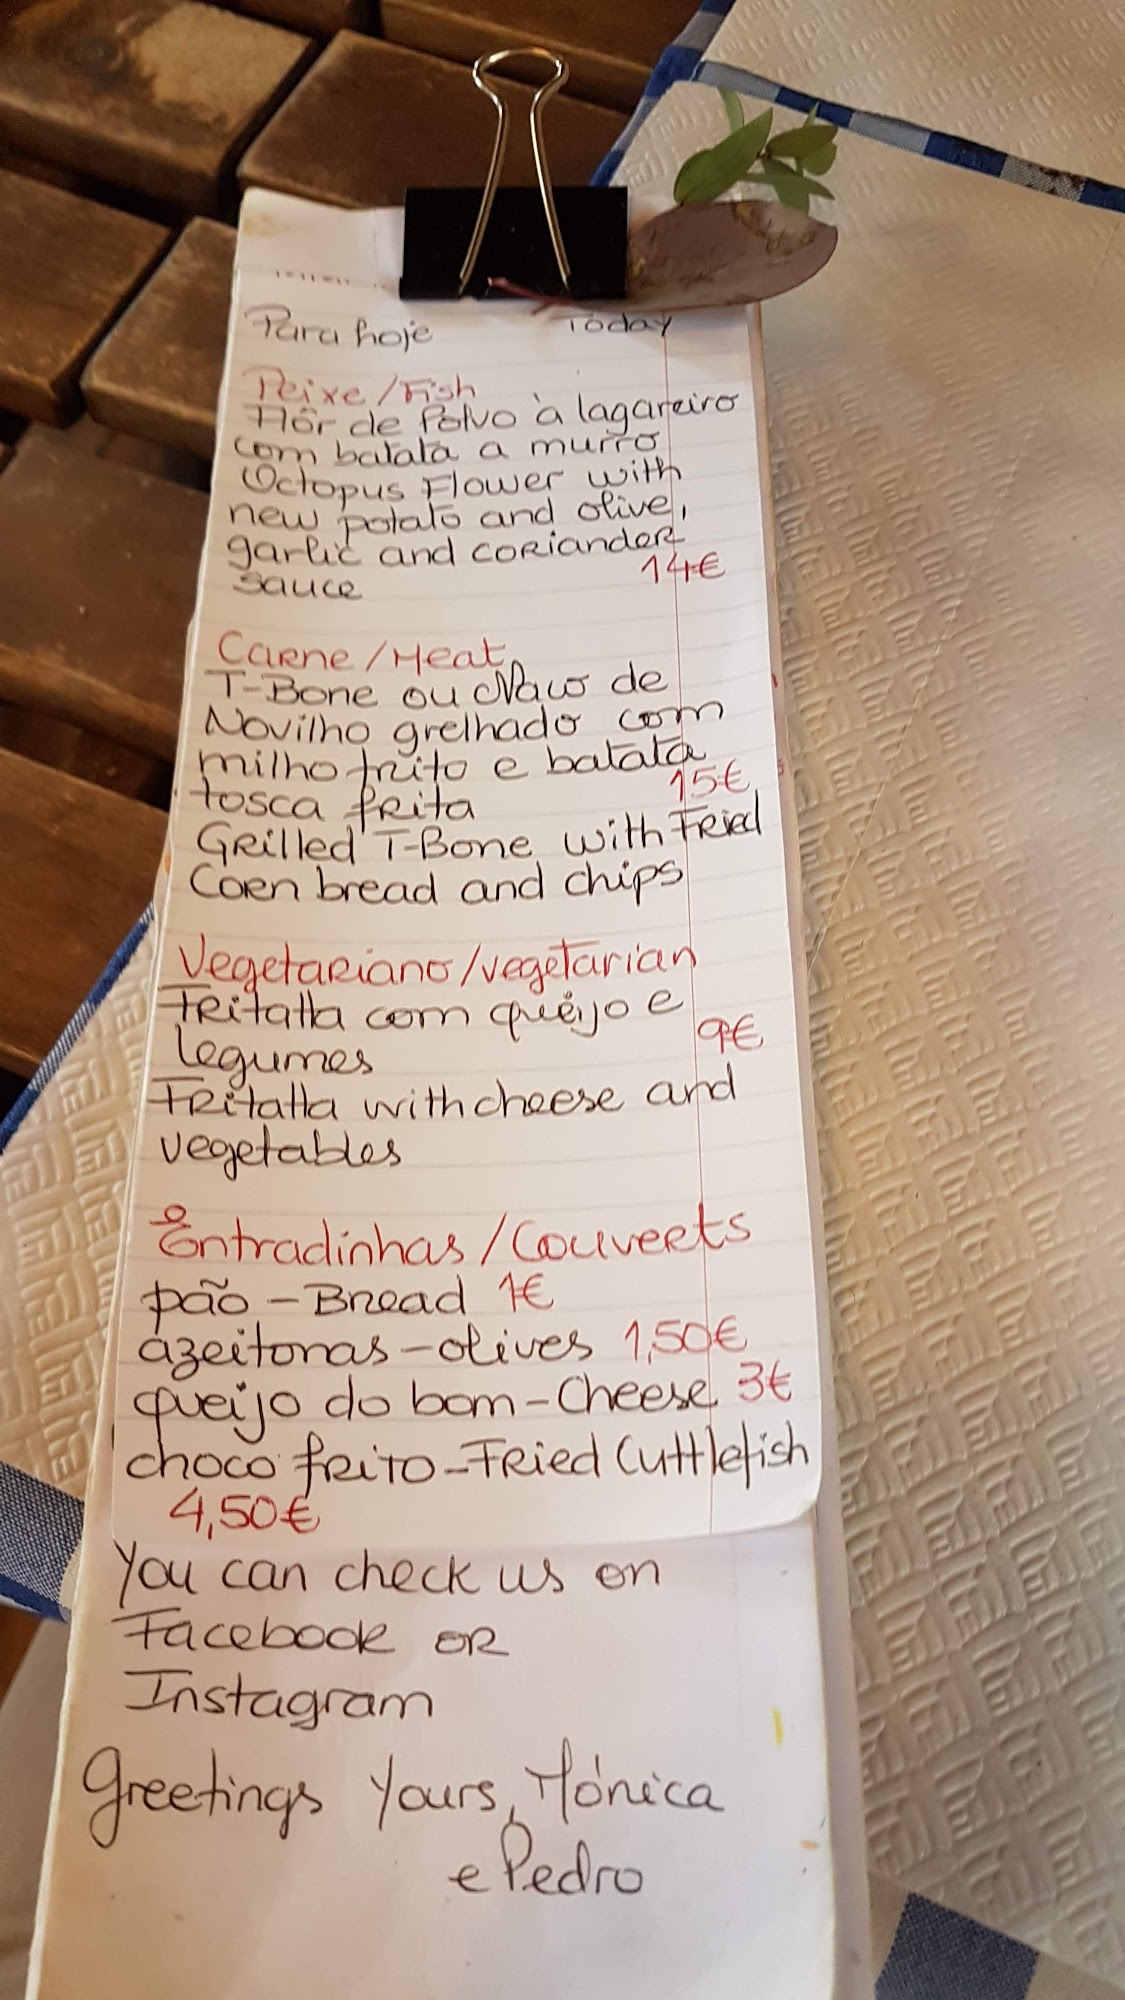 Para hoje Today
Peixe/Fish
Flôr de Polvo à lagareiro
com batata a murro
Octopus Flower with
new potato and olive,
garlic and coriander
sauce 14€
Carne/Meat
T-Bone ou Naco de
Novilho grelhado com
milho frito e batata
tosca frita 15€
Grilled T-Bone with Fried
Corn bread and chips
Vegetariano/vegetarian
Fritatta com queijo e
legumes 9€
Fritatta with cheese and
vegetables
Entradinhas/Couverts
pão - Bread 1€
azeitonas - olives 1,50€
queijo do bom - Cheese 3€
choco frito - Fried Cuttlefish
4,50€
You can check us on
Facebook or
Instagram
greetings Yours, Mónica
e Pedro